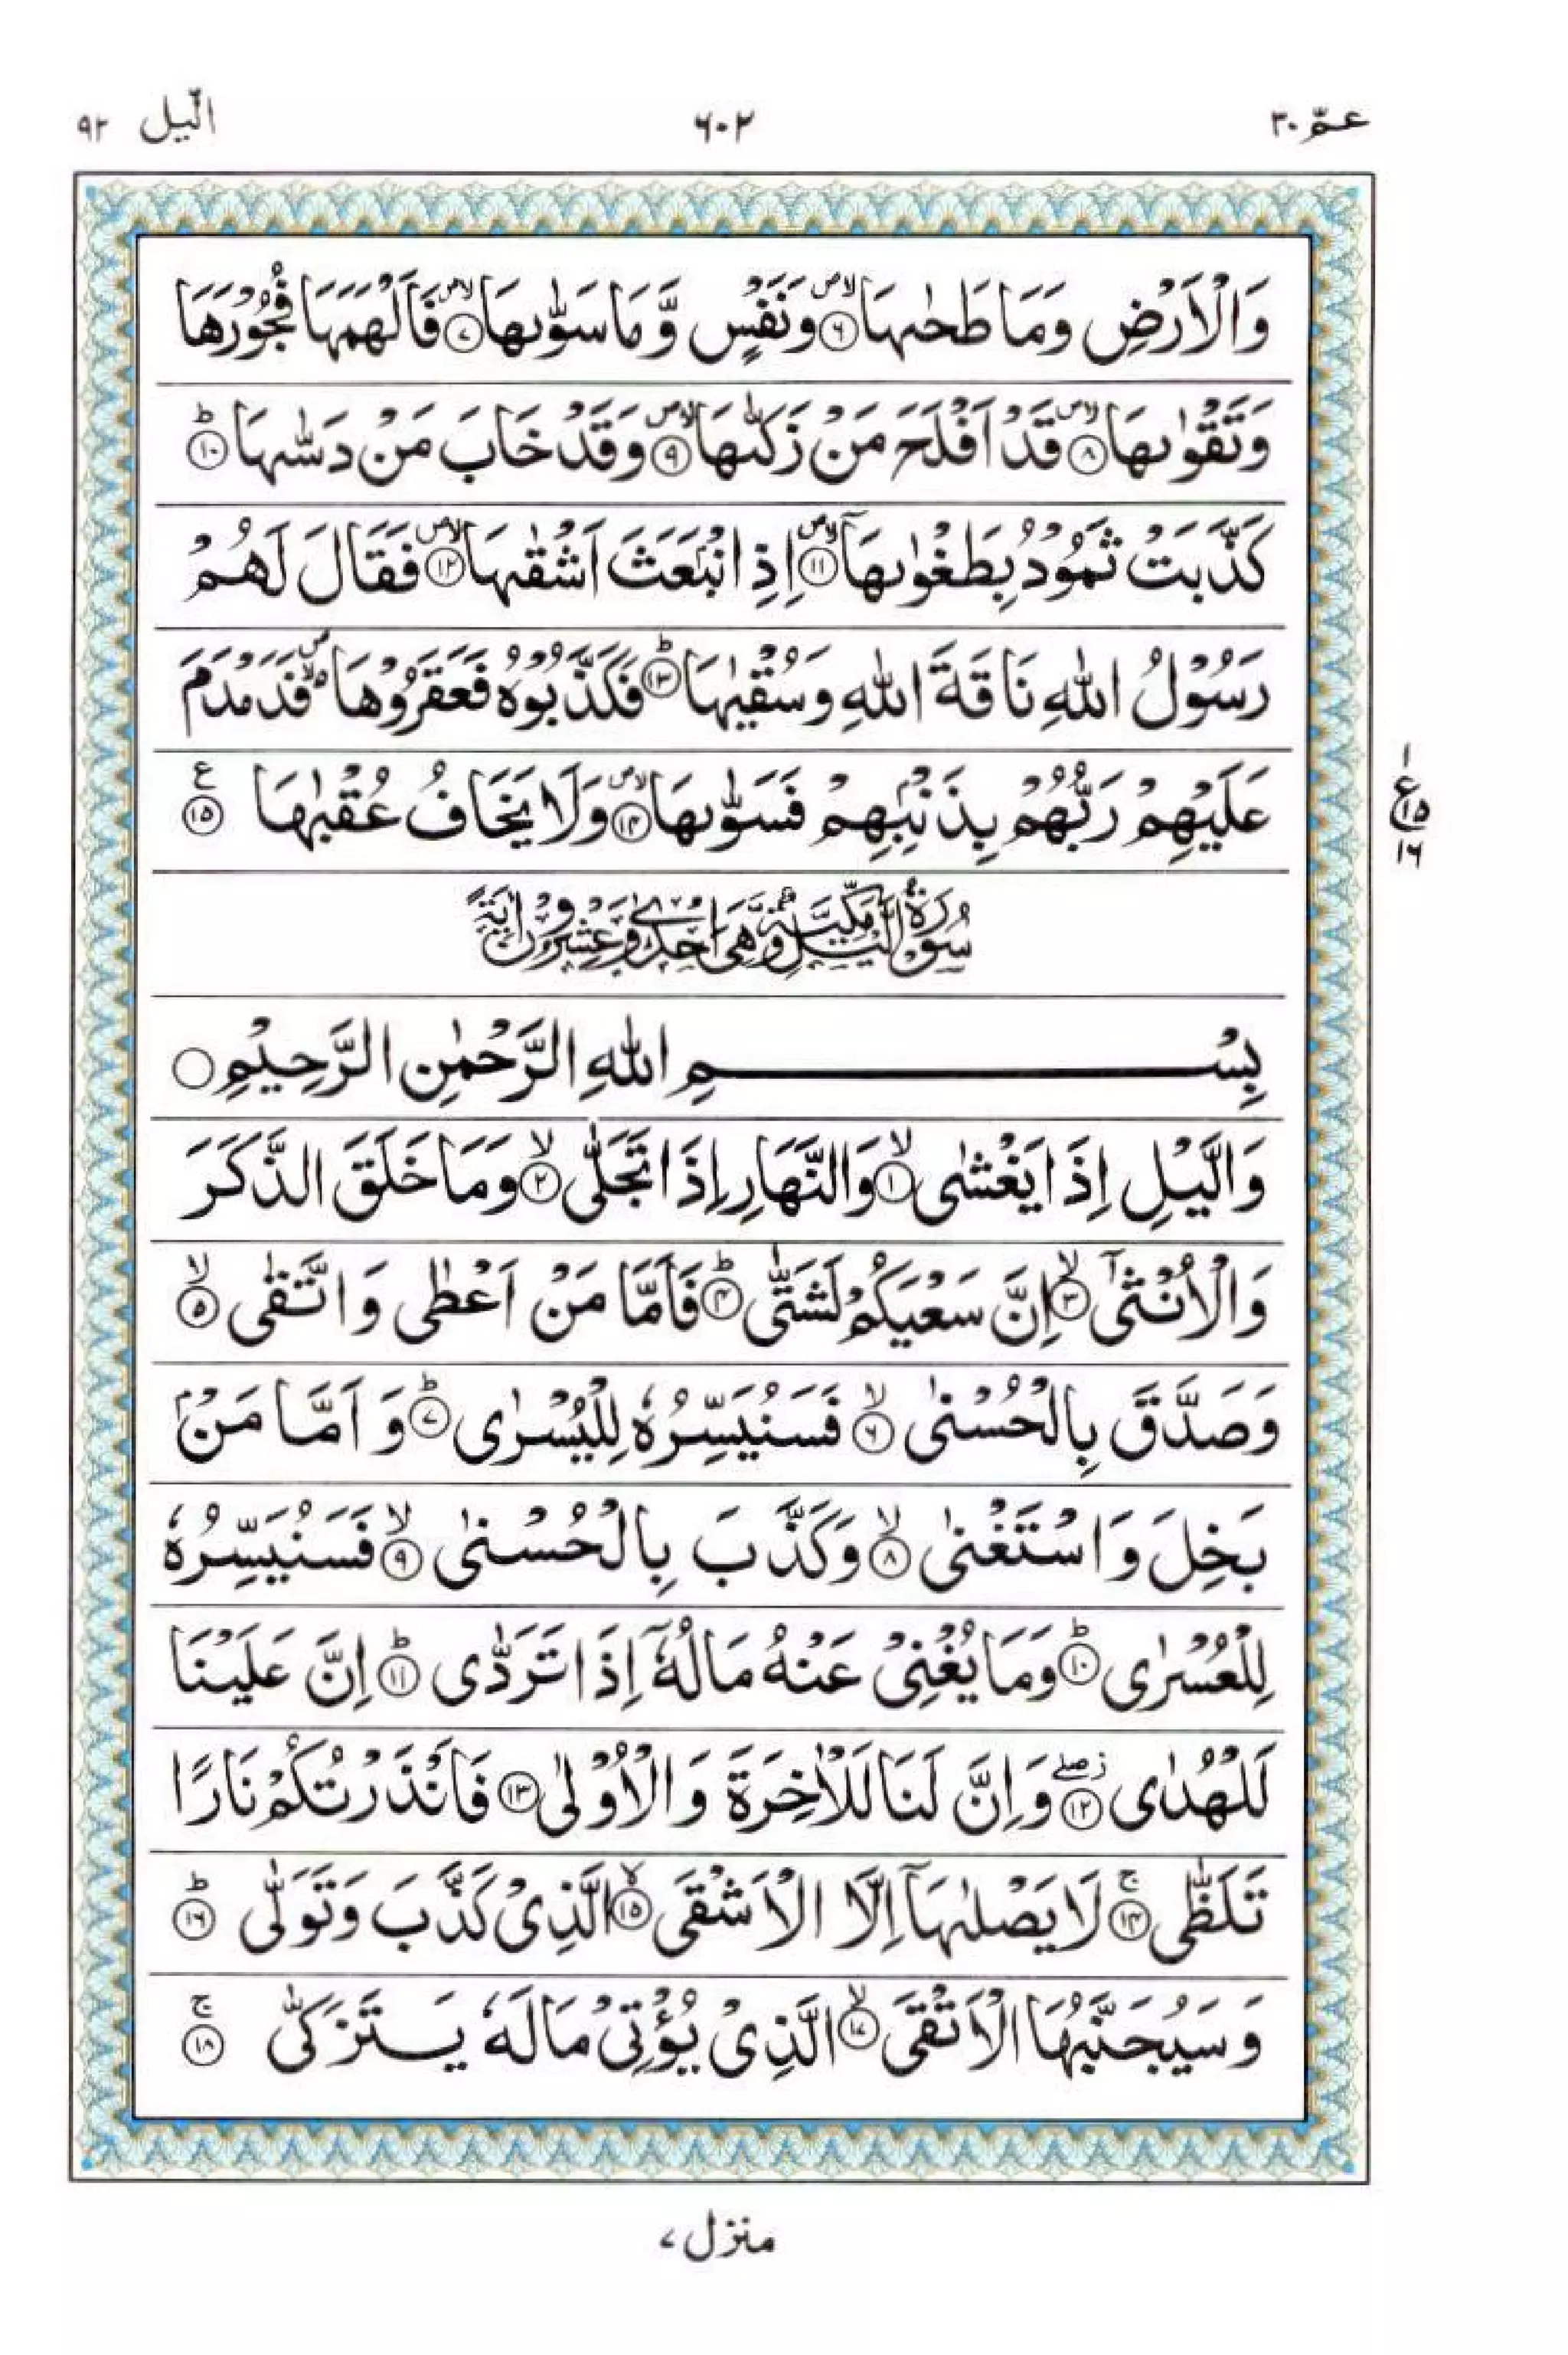 عمّ ٣٠
٦٠٢
الّيل ٩٢
وَالْاَرْضِ وَمَا طَحٰىهَا ۪ۙۙ‏﴿۶﴾ وَنَفْسٍ وَّ مَا سَوّٰىهَا ۪ۙۙ‏﴿۷﴾ فَاَلْهَمَهَا فُجُوْرَهَا
وَتَقْوٰىهَا ۪ۙۙ‏﴿۸﴾ قَدْ اَفْلَحَ مَنْ زَكّٰىهَا ۪ۙۙ‏﴿۹﴾ وَقَدْ خَابَ مَنْ دَسّٰىهَا ؕ‏﴿۱۰﴾
كَذَّبَتْ ثَمُوْدُ بِطَغْوٰىهَاۤ ۪ۙۙ‏﴿۱۱﴾ اِذِ انْۢبَعَثَ اَشْقٰىهَا ۪ۙۙ‏﴿۱۲﴾ فَقَالَ لَهُمْ
رَسُوْلُ اللّٰهِ نَاقَةَ اللّٰهِ وَسُقْيٰهَا ؕ‏﴿۱۳﴾ فَكَذَّبُوْهُ فَعَقَرُوْهَا ۪ۙ فَدَمْدَمَ
عَلَيْهِمْ رَبُّهُمْ بِذَنْۢبِهِمْ فَسَوّٰىهَا ۪ۙۙ‏﴿۱۴﴾ وَلَا يَخَافُ عُقْبٰهَا ﴿۱۵﴾ ع
ع ١ ١٥ ١٦
سُوْرَةُ الَّيْلِ مَكِّيَّةٌ وَّهِيَ اِحْدٰى وَعِشْرُوْنَ اٰيَةً
بِسْــــــــمِ اللّٰهِ الرَّحْمٰنِ الرَّحِيْمِ
وَالَّيْلِ اِذَا يَغْشٰى ۙ‏﴿۱﴾ وَالنَّهَارِ اِذَا تَجَلّٰى ۙ‏﴿۲﴾ وَمَا خَلَقَ الذَّكَرَ
وَالْاُنْثٰىۤ ۙ‏﴿۳﴾ اِنَّ سَعْيَكُمْ لَشَتّٰى ؕ‏﴿۴﴾ فَاَمَّا مَنْ اَعْطٰى وَاتَّقٰى ۙ‏﴿۵﴾
وَصَدَّقَ بِالْحُسْنٰى ۙ‏﴿۶﴾ فَسَنُيَسِّرُهٗ لِلْيُسْرٰى ؕ‏﴿۷﴾ وَاَمَّا مَنْۢ
بَخِلَ وَاسْتَغْنٰى ۙ‏﴿۸﴾ وَكَذَّبَ بِالْحُسْنٰى ۙ‏﴿۹﴾ فَسَنُيَسِّرُهٗ
لِلْعُسْرٰى ؕ‏﴿۱۰﴾ وَمَا يُغْنِيْ عَنْهُ مَالُهٗۤ اِذَا تَرَدّٰى ؕ‏﴿۱۱﴾ اِنَّ عَلَيْنَا
لَلْهُدٰى ۖ‏﴿۱۲﴾ وَاِنَّ لَنَا لَلْاٰخِرَةَ وَالْاُوْلٰى ﴿۱۳﴾ فَاَنْذَرْتُكُمْ نَارًا
تَلَظّٰى ۚ‏﴿۱۴﴾ لَا يَصْلٰىهَاۤ اِلَّا الْاَشْقَى ۙ‏﴿۱۵﴾ الَّذِيْ كَذَّبَ وَتَوَلّٰى ؕ‏﴿۱۶﴾
وَسَيُجَنَّبُهَا الْاَتْقَى ۙ‏﴿۱۷﴾ الَّذِيْ يُؤْتِيْ مَالَهٗ يَتَزَكّٰى ۚ‏﴿۱۸﴾
منزل ٧